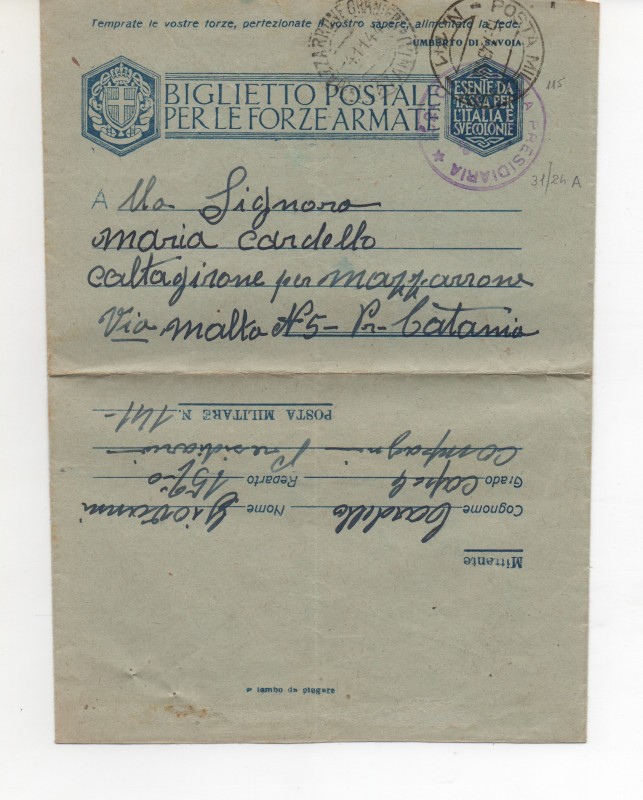 Temprate le vostre forze, perfezionate il vostro sapere, alimentate la fede.
UMBERTO DI SAVOIA
BIGLIETTO POSTALE
PER LE FORZE ARMATE
ESENTE DA
TASSA PER
L'ITALIA E
SVE COLONIE
POSTA MIL
PRESIDIARIA
115
31/24 A
A lla Signora
Maria Cardello
Caltagirone per Mazzarrone
Via Malta N5 - Pr. Catania
Mittente
Cognome Cardello Nome Giovanni
Grado Cap. Reparto
Compagni Presidiari
POSTA MILITARE N. 141-
e lembo da piegare